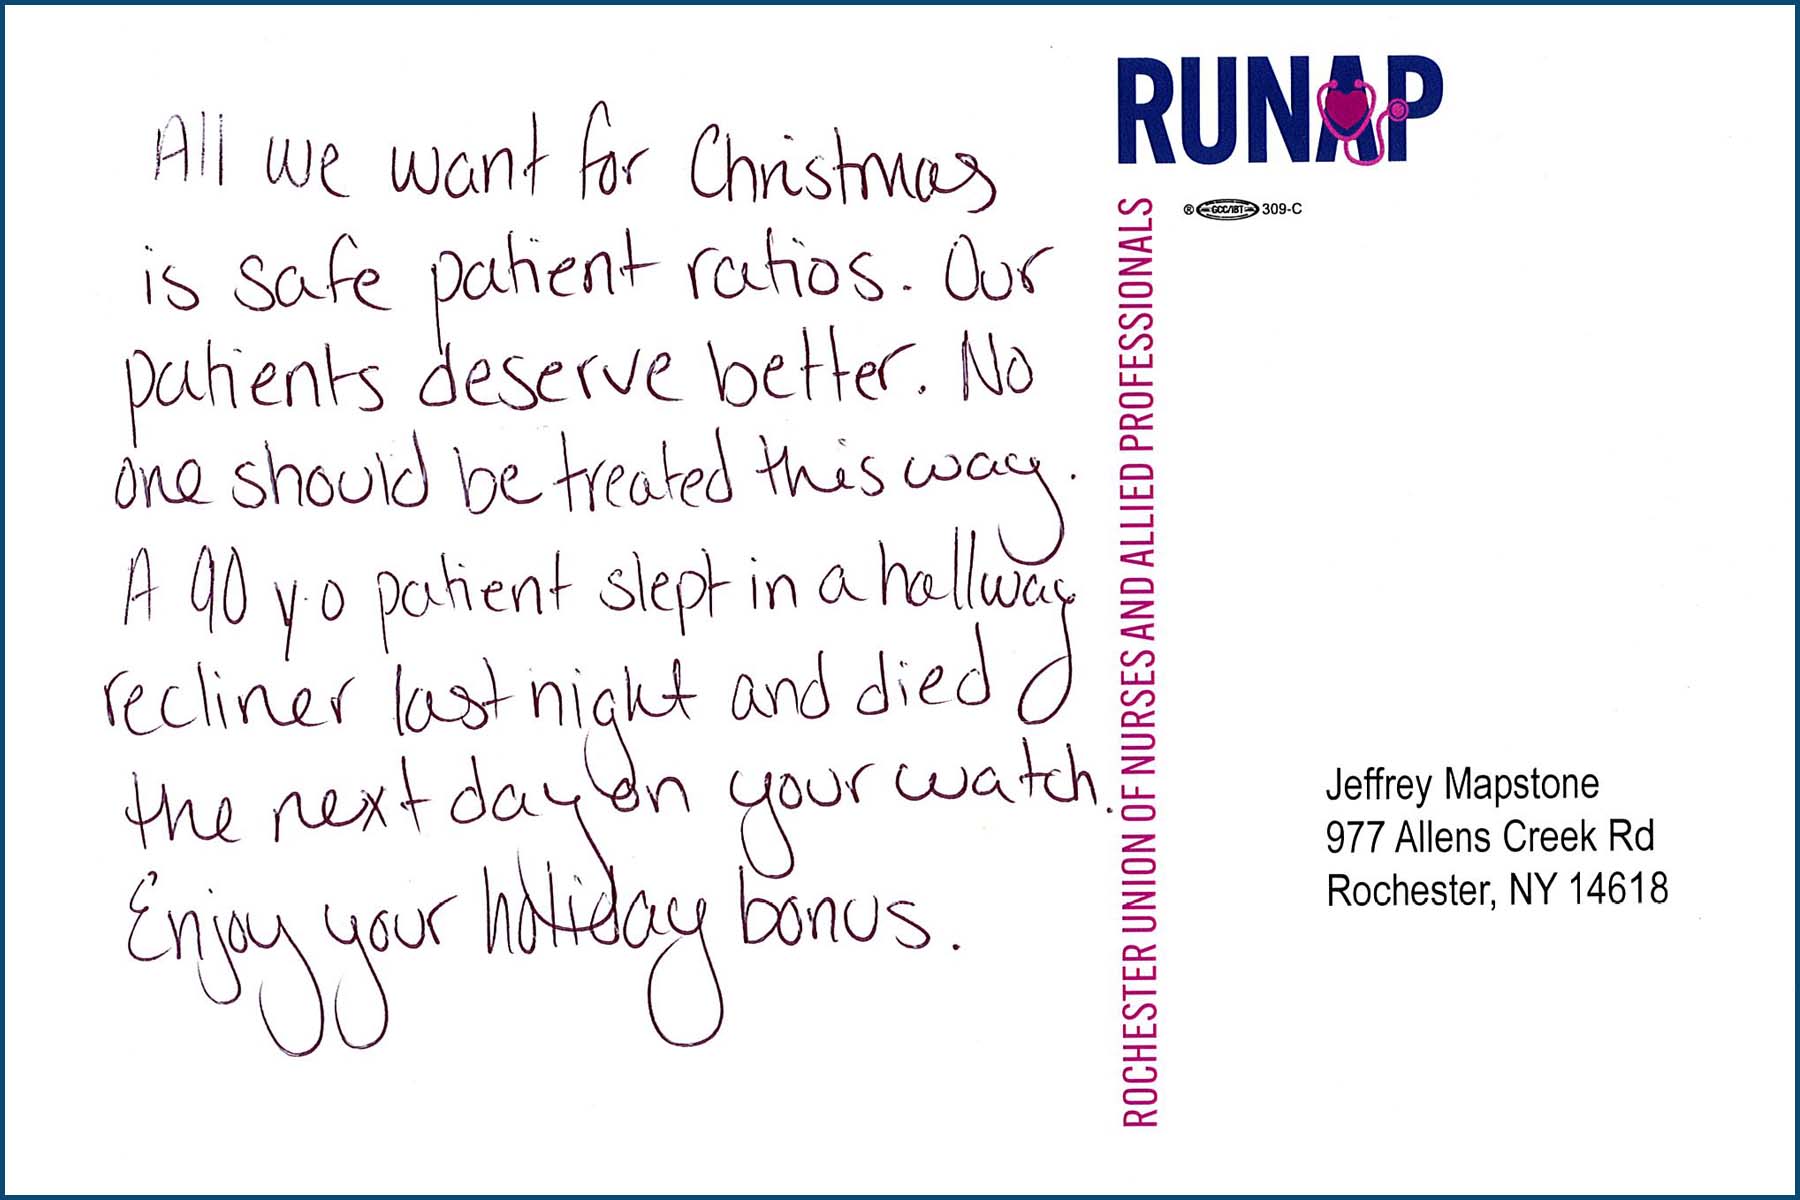 All we want for Christmas
is safe patient ratios. Our
patients deserve better. No
one should be treated this way.
A 90 y.o patient slept in a hallway
recliner last night and died
the next day on your watch.
Enjoy your holiday bonus.
RUNAP
® GCC/IBT 309-C
ROCHESTER UNION OF NURSES AND ALLIED PROFESSIONALS
Jeffrey Mapstone
977 Allens Creek Rd
Rochester, NY 14618